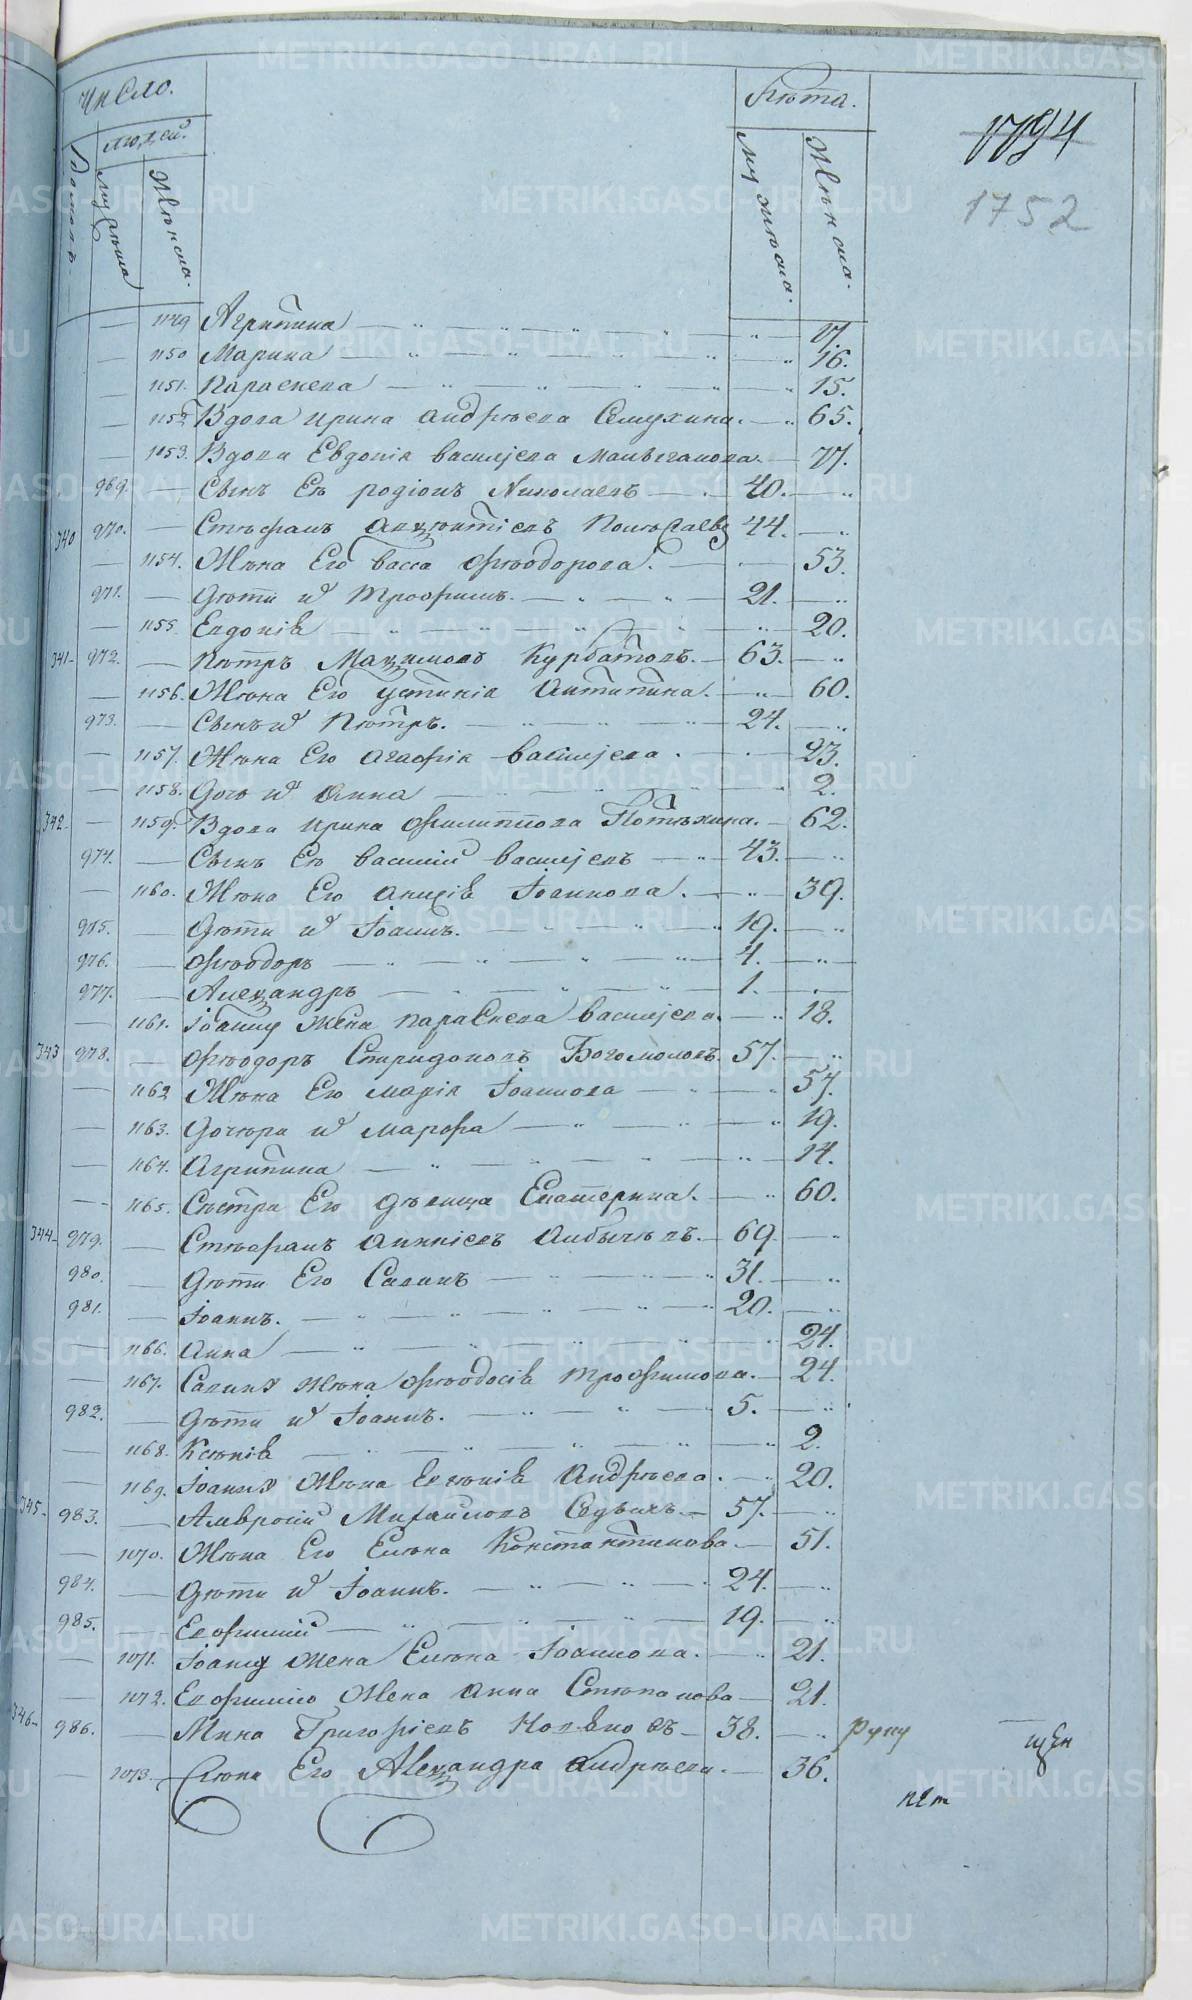 Число.
Лѣта.
людей.
домовъ
мужеска
Женска.
мужеска.
Женска.
1794
1752
1149 Агрипина 17.
1150 Марина 16.
1151. Параскева 15.
1152 Вдова Ирина Андрѣева 65.
1153. Вдова Евдокія Василіева 77.
969. Сынъ Ея Родіонъ Николаевъ 40.
340 970. Стефанъ 44.
1154. Жена Его Васса Феодорова. 53.
971. Дѣти и҃ Трофимъ. 21.
1155. Евдокія 20.
341 972. Петръ Маѯимовъ Курбатовъ. 63.
1156. Жена Его Устинія Антипина. 60.
973. Сынъ и҃ Петръ. 24.
1157. Жена Его Агафія Василіева. 23.
1158. Дочь и҃ Анна 2.
342 1159. Вдова Ирина Филиппова Потѣхина. 62.
974. Сынъ Ея Василій Василіевъ 43.
1160. Жена Его Анисія Іоаннова. 39.
975. Дѣти и҃ Іоаннъ. 19.
976. Феодоръ 4.
977. Алеѯандръ 1.
1161. Іоанну жена Параскева Василіева. 18.
343 978. Феодоръ Спиридоновъ Богомоловъ. 57.
1162 Жена Его Марія Іоаннова 57.
1163. Дочери и҃ Марфа 19.
1164. Агрипина 14.
1165. Сестра Его дѣвица Екатерина. 60.
344 979. Стефанъ 69.
980. Дѣти Его Савинъ 31.
981. Іоаннъ. 20.
1166. Анна 24.
1167. Савинѣ жена Феодосія Трофимова. 24.
982. Дѣти и҃ Іоаннъ. 5.
1168. Ксенія 2.
1169. Іоаннѣ Жена Евгенія Андрѣева. 20.
345 983. Амвросій Михайловъ Седыхъ 57.
1070. Жена Его Елена Константинова. 51.
984. Дѣти и҃ Іоаннъ. 24.
985. Евфимій 19.
1071. Іоанну жена Елена Іоаннова. 21.
1072. Евфимію Жена Анна Стефанова 21.
346 986. Мина Григоріевъ 38.
1073. Жена Его Алеѯандра Андрѣева. 36.